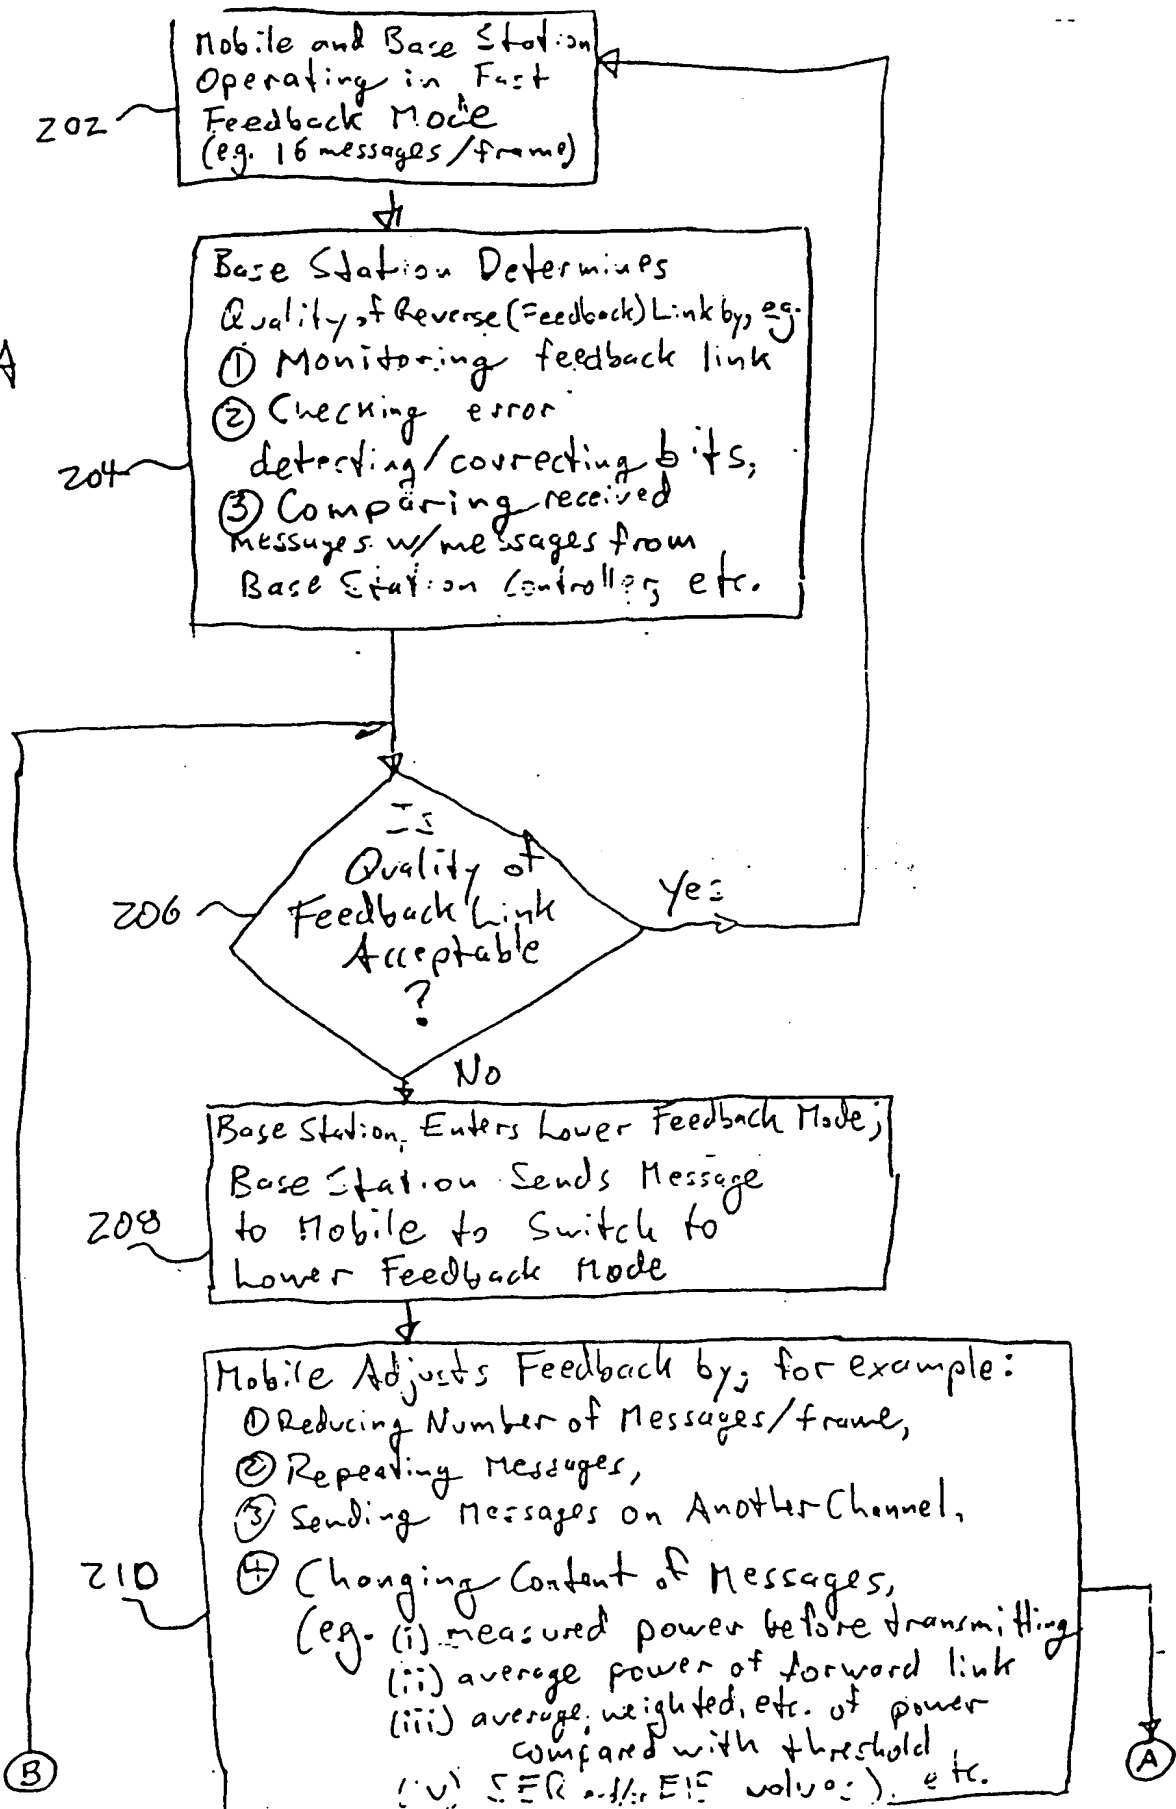 Mobile and Base Station
Operating in Fast
Feedback Mode
(e.g. 16 messages/frame)
202
Base Station Determines
Quality of Reverse (Feedback) Link by, eg.
① Monitoring feedback link
② Checking error
detecting/correcting bits,
204
③ Comparing received
messages w/messages from
Base Station Controller, etc.
Is
Quality of
Feedback Link
Acceptable
?
206
Yes
No
Base Station Enters Lower Feedback Mode;
Base Station Sends Message
to Mobile to Switch to
Lower Feedback Mode
208
Mobile Adjusts Feedback by, for example:
① Reducing Number of Messages/frame,
② Repeating Messages,
③ Sending Messages on Another Channel,
④ Changing Content of Messages,
210
(eg. (i) measured power before transmitting
(ii) average power of forward link
(iii) average, weighted, etc. of power
compared with threshold
values), etc.
B
A